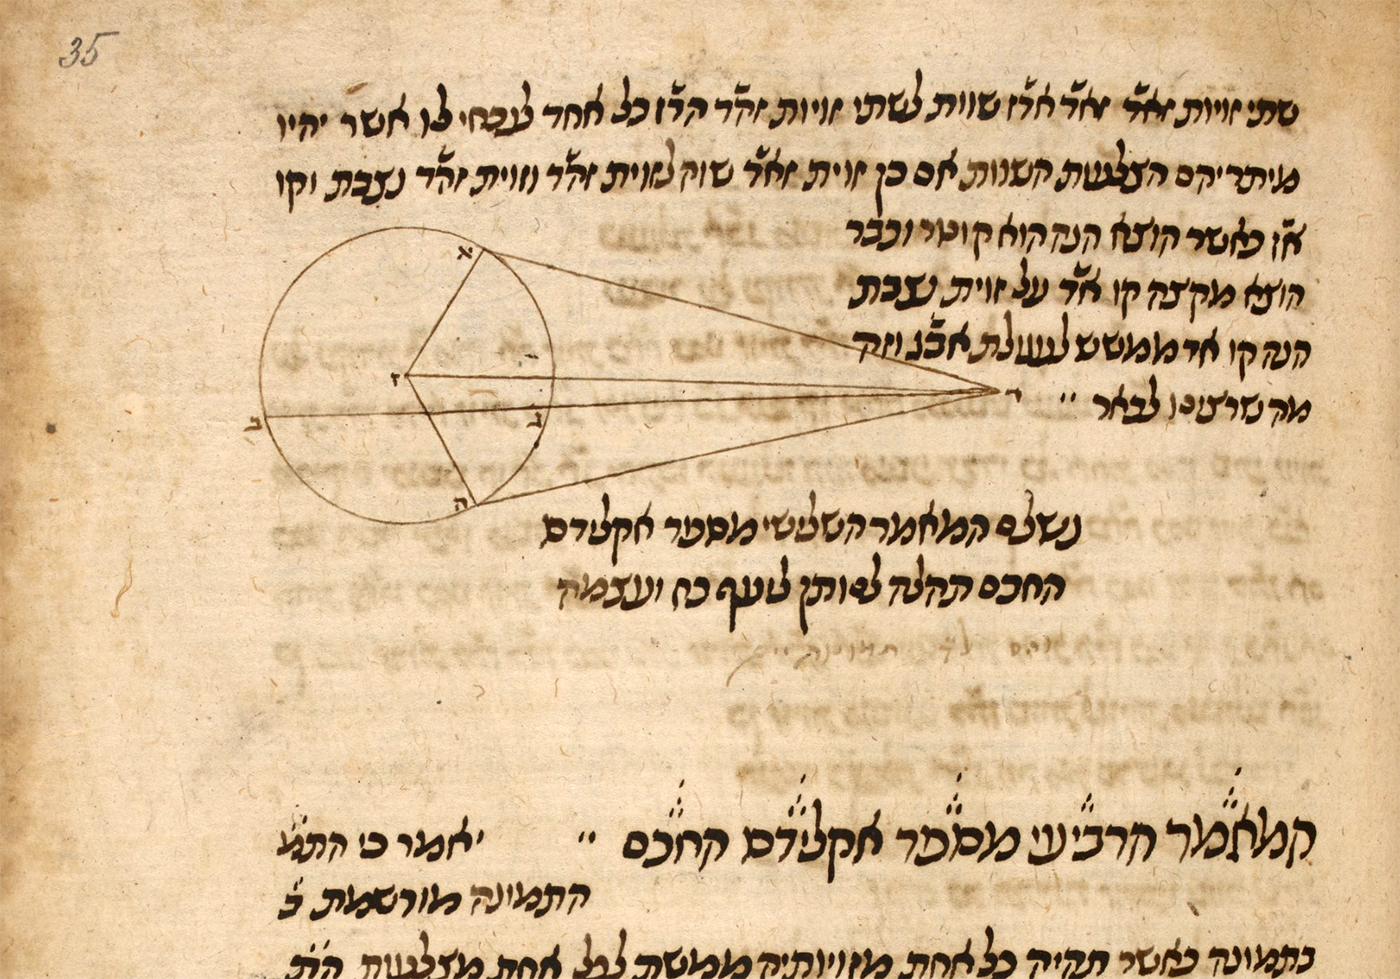 35
שתי זויות זאד זאד אדז שוות לשתי זויות זהד הדז כל אחד לנכחי לו אשר יהיו
מיתריהם הצלעות השוות אם כן זוית זאד שוה לזוית זהד וזוית זהד נצבת וקו
אז כאשר הוצא הנה הוא קוטר וכבר
הוצא מקצה קו אד על זוית נצבת
הנה קו אד ממשש לעגולת אבג וזה
מה שרצינו לבאר
א
ז
ב
ג
ד
ה
נשלם המאמר השלישי מספר אקלידס
החכם תהלה לנותן ליעף כח ועצמה
המאמר הרביעי מספר אקלידס החכם יאמר כי התמו
התמונה מורשמת ב
בתמונה כאשר תהיה כל אחת מזויותיה ממששת לכל אחת מצלעות הת